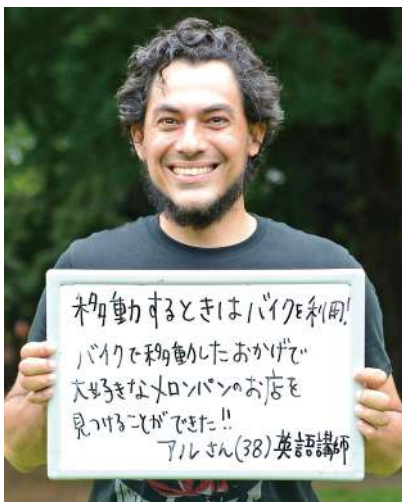 移動するときはバイクを利用!
バイクで移動したおかげで
大好きなメロンパンのお店を
見つけることができた!!
アルさん(38)英語講師